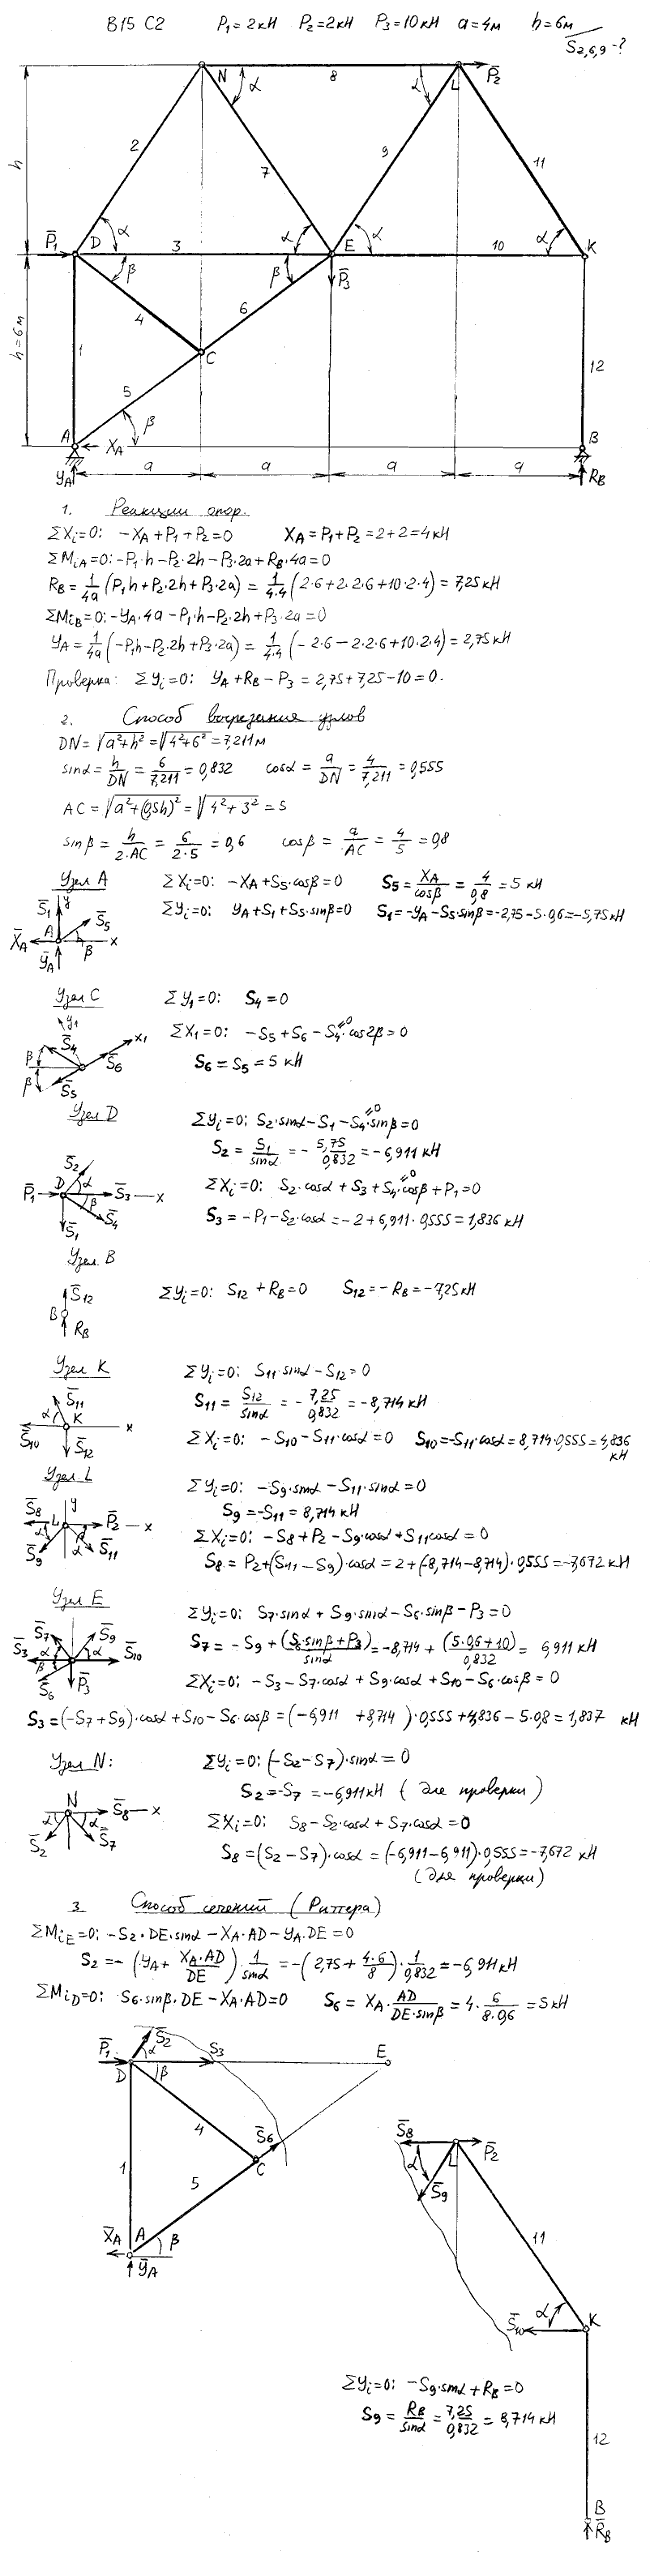 В15 С2 P₁=2кН P₂=2кН P₃=10кН a=4м h=6м
S₂,₆,₉-?
N α 8 α L P̄₂
h 2 7 9 11
P̄₁ D α 3 α E α 10 α K
β β P̄₃
4 6
h=6м 1 C 12
5
A β B
X_A
Y_A a a a a R_B
1. Реакции опор.
ΣXᵢ=0: -X_A+P₁+P₂=0 X_A=P₁+P₂=2+2=4кН
ΣM_iA=0: -P₁·h-P₂·2h-P₃·2a+R_B·4a=0
R_B = 1/4a (P₁h+P₂·2h+P₃·2a) = 1/4·4 (2·6+2·2·6+10·2·4) = 7,25кН
ΣM_iB=0: -Y_A·4a-P₁·h-P₂·2h+P₃·2a=0
Y_A = 1/4a (-P₁h-P₂·2h+P₃·2a) = 1/4·4 (-2·6-2·2·6+10·2·4) = 2,75кН
Проверка: ΣYᵢ=0: Y_A+R_B-P₃=2,75+7,25-10=0.
2. Способ вырезания узлов
DN=√a²+h²=√4²+6²=7,211м
sinα = h/DN = 6/7,211 = 0,832 cosα = a/DN = 4/7,211 = 0,555
AC=√a²+(0,5h)²=√4²+3²=5
sinβ = h/2·AC = 6/2·5 = 0,6 cosβ = a/AC = 4/5 = 0,8
Узел A ΣXᵢ=0: -X_A+S₅·cosβ=0 S₅ = X_A/cosβ = 4/0,8 = 5 кН
S̄₁ y S̄₅ ΣYᵢ=0: Y_A+S₁+S₅·sinβ=0 S₁=-Y_A-S₅·sinβ=-2,75-5·0,6=-5,75кН
X̄_A A β x
Ȳ_A
Узел C ΣY₁=0: S₄=0
y₁ S̄₄ x₁ ΣX₁=0: -S₅+S₆-S₄·cos2β=0
β β S̄₅ S̄₆ S₆=S₅=5 кН
Узел D ΣYᵢ=0: S₂·sinα-S₁-S₄·sinβ=0
S₂ = S₁/sinα = -5,75/0,832 = -6,911 кН
S̄₂ α P̄₁ D S̄₃ x ΣXᵢ=0: S₂·cosα+S₃+S₄·cosβ+P₁=0
β S̄₁ S̄₄ S₃=-P₁-S₂·cosα=-2+6,911·0,555=1,836кН
Узел B
S̄₁₂ ΣYᵢ=0: S₁₂+R_B=0 S₁₂=-R_B=-7,25кН
B
R_B
Узел K ΣYᵢ=0: S₁₁·sinα-S₁₂=0
S̄₁₁ α K x S₁₁ = S₁₂/sinα = -7,25/0,832 = -8,714 кН
S̄₁₀ S̄₁₂ ΣXᵢ=0: -S₁₀-S₁₁·cosα=0 S₁₀=-S₁₁·cosα=8,714·0,555=4,836 кН
Узел L ΣYᵢ=0: -S₉·sinα-S₁₁·sinα=0
S₉=-S₁₁=8,714 кН
S̄₈ y L P̄₂ x ΣXᵢ=0: -S₈+P₂-S₉cosα+S₁₁cosα=0
α α S̄₉ S̄₁₁ S₈=P₂+(S₁₁-S₉)·cosα=2+(-8,714-8,714)·0,555=-7,672 кН
Узел E ΣYᵢ=0: S₇·sinα+S₉·sinα-S₆·sinβ-P₃=0
S̄₇ S̄₉ S̄₃ α α S̄₁₀ S₇=-S₉+(S₆·sinβ+P₃)/sinα=-8,714+(5·0,6+10)/0,832= 6,911 кН
β S̄₆ P̄₃ ΣXᵢ=0: -S₃-S₇·cosα+S₉·cosα+S₁₀-S₆·cosβ=0
S₃=(-S₇+S₉)·cosα+S₁₀-S₆·cosβ=(-6,911+8,714)·0,555+4,836-5·0,8=1,837 кН
Узел N: ΣYᵢ=0: (-S₂-S₇)·sinα=0
S₂=-S₇=-6,911кН (для проверки)
N S̄₈ x ΣXᵢ=0: S₈-S₂·cosα+S₇·cosα=0
α α S̄₂ S̄₇ S₈=(S₂-S₇)·cosα=(-6,911-6,911)·0,555=-7,672 кН
(для проверки)
3. Способ сечений (Риттера)
ΣM_iE=0: -S₂·DE·sinα-X_A·AD-Y_A·DE=0
S₂=-(Y_A+X_A·AD/DE)·1/sinα=-(2,75+4·6/8)·1/0,832=-6,911кН
ΣM_iD=0: S₆·sinβ·DE-X_A·AD=0 S₆=X_A·AD/DE·sinβ=4·6/8·0,6=5кН
P̄₁ S̄₂ α S₃ E
D β
4 S̄₆ S̄₈ P̄₂
1 C α L
5 S̄₉
X̄_A A β 11
Ȳ_A
α K
S̄₁₀
ΣYᵢ=0: -S₉·sinα+R_B=0
S₉ = R_B/sinα = 7,25/0,832 = 8,714 кН
12
B
R̄_B